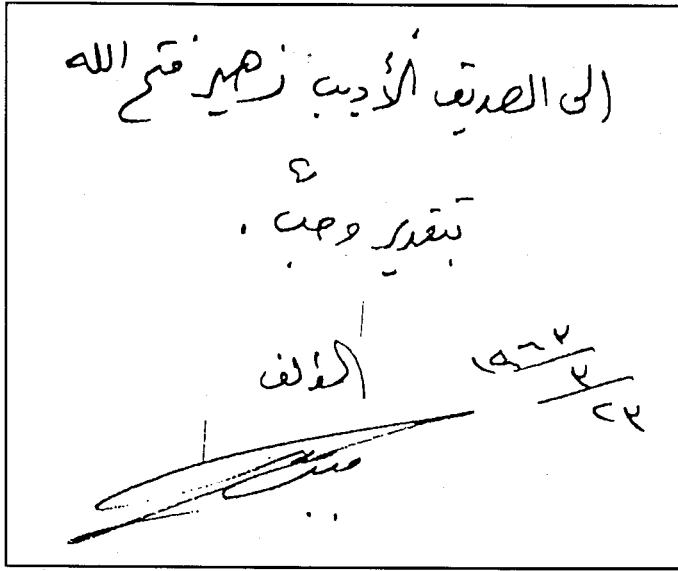 إلى الصديق الأديب زهير فتح الله
بتقدير وحبّ .
المؤلف
٢٣/٣/١٩٦٢